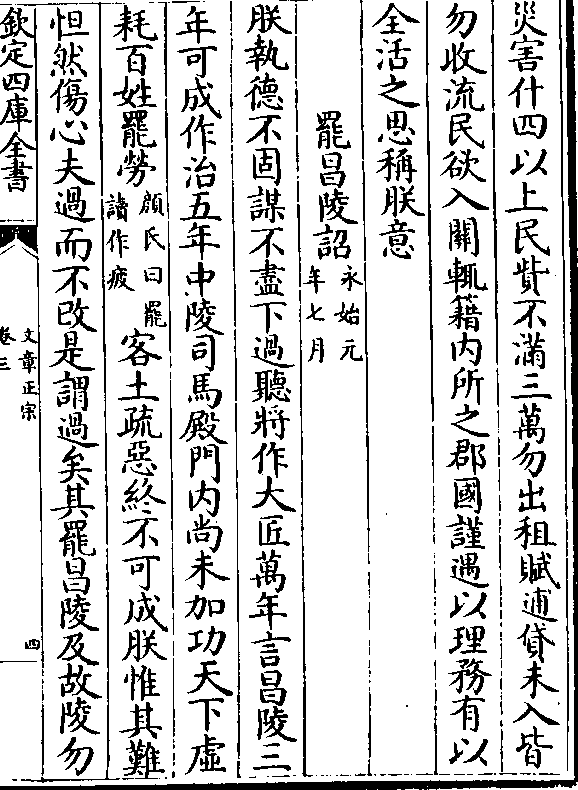 災害什四以上民貲不滿三萬勿出租賦逋貸未入皆
勿收流民欲入關輒籍内所之郡國謹遇以理務有以
全活之思稱朕意
罷昌陵詔永始元年七月
朕執德不固謀不盡下過聽將作大匠萬年言昌陵三
年可成作治五年中陵司馬殿門内尚未加功天下虛
耗百姓罷勞顔氏曰罷讀作疲客土疏惡終不可成朕惟其難
怛然傷心夫過而不改是謂過矣其罷昌陵及故陵勿
欽定四庫全書
文章正宗
卷三
四